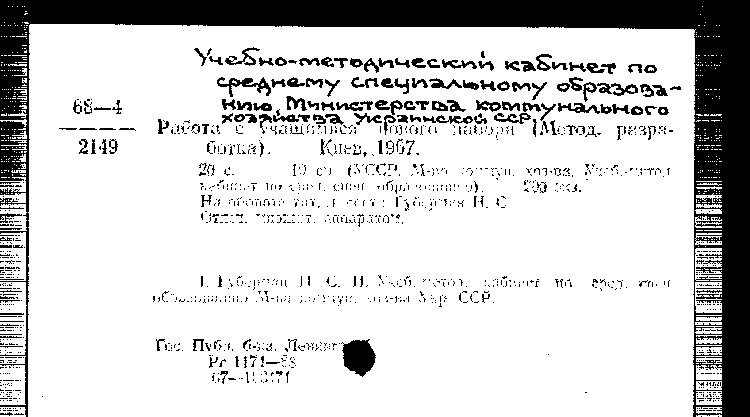 Учебно-методический кабинет по
среднему специальному образова-
нию, Министерства коммунального
хозяйства Украинской ССР,
68—4
2149
Работа с учащимися нового набора (Метод. разра-
ботка). Киев, 1967.
20 с. 19 см (УССР. М-во коммун. хоз-ва. Учеб.-метод.
кабинет по сред. спец. образованию). 200 экз.
На обороте тит. л. сост.: Губерная Н. С.
Отпеч. множит. аппаратом.
I. Губерная Н. С. II. Учеб.-метод. кабинет по сред. спец.
образованию М-ва коммун. хоз-ва Укр. ССР.
Гос. Публ. б-ка. Ленинг
Рг 1171—68
67—